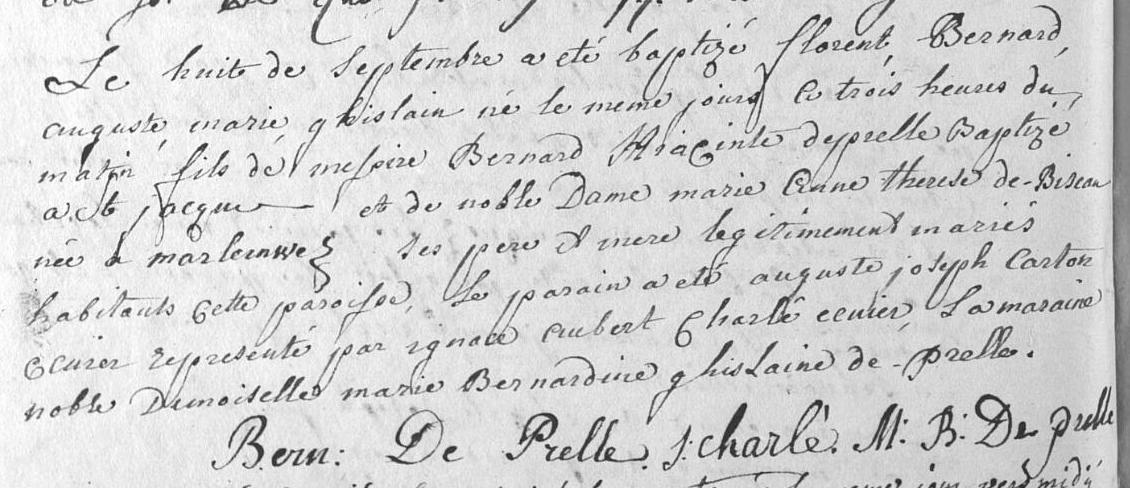 Le huit de Septembre a eté baptizé florent Bernard
auguste marie ghislain né le meme jours a trois heures du
matin fils de messire Bernard Hiacinte deprelle Baptizé
a st jacque et de noble Dame marie anne therese de Biseau
née a marleinwez ses pere et mere legitimement mariés
habitants cette paroisse, le parain a eté auguste joseph Carton
ecuier representé par ignace aubert Charlé ecuier, La maraine
noble Demoiselle marie Bernardine ghislaine de prelle.
Bern: De Prelle. j: charlé. M: B: De prelle
jour vers midÿ